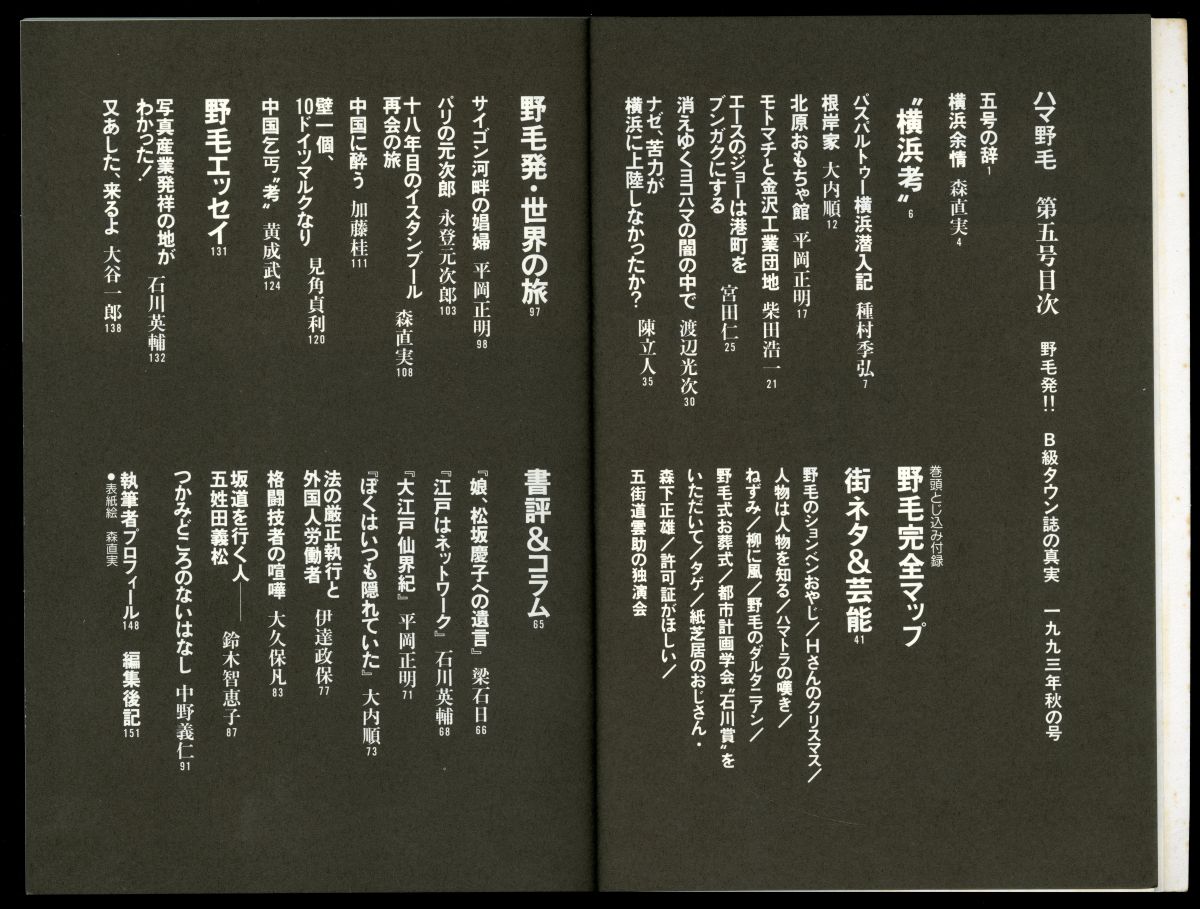 ハマ野毛　第五号目次　野毛発!!　B級タウン誌の真実　一九九三年秋の号
五号の辞 1
横浜余情　森直実 4
〝横浜考〟 6
バスバルトゥー横浜潜入記　種村季弘 7
根岸家　大内順 12
北原おもちゃ館　平岡正明 17
モトマチと金沢工業団地　柴田浩一 21
エースのジョーは港町を
ブンガクにする　宮田仁 25
消えゆくヨコハマの闇の中で　渡辺光次 30
ナゼ、苦力が
横浜に上陸しなかったか?　陳立人 35
巻頭とじ込み付録
野毛完全マップ
街ネタ&芸能 41
野毛のションベンおやじ／Hさんのクリスマス／
人物は人物を知る／ハマトラの嘆き／
ねずみ／柳に風／野毛のダルタニアン／
野毛式お葬式／都市計画学会〝石川賞〟を
いただいて／タゲ／紙芝居のおじさん・
森下正雄／許可証がほしい／
五街道雲助の独演会
野毛発・世界の旅 97
サイゴン河畔の娼婦　平岡正明 98
パリの元次郎　永登元次郎 103
十八年目のイスタンブール
再会の旅　森直実 108
中国に酔う　加藤桂 111
壁一個、
10ドイツマルクなり　見角貞利 120
中国乞丐〝考〟　黄成武 124
野毛エッセイ 131
写真産業発祥の地が
わかった!　石川英輔 132
又あした、来るよ　大谷一郎 138
書評&コラム 65
『娘、松坂慶子への遺言』　梁石日 66
『江戸はネットワーク』　石川英輔 68
『大江戸仙界紀』　平岡正明 71
『ぼくはいつも隠れていた』　大内順 73
法の厳正執行と
外国人労働者　伊達政保 77
格闘技者の喧嘩　大久保凡 83
坂道を行く人──
五姓田義松　鈴木智恵子 87
つかみどころのないはなし　中野義仁 91
執筆者プロフィール 148　編集後記 151
●表紙絵　森直実